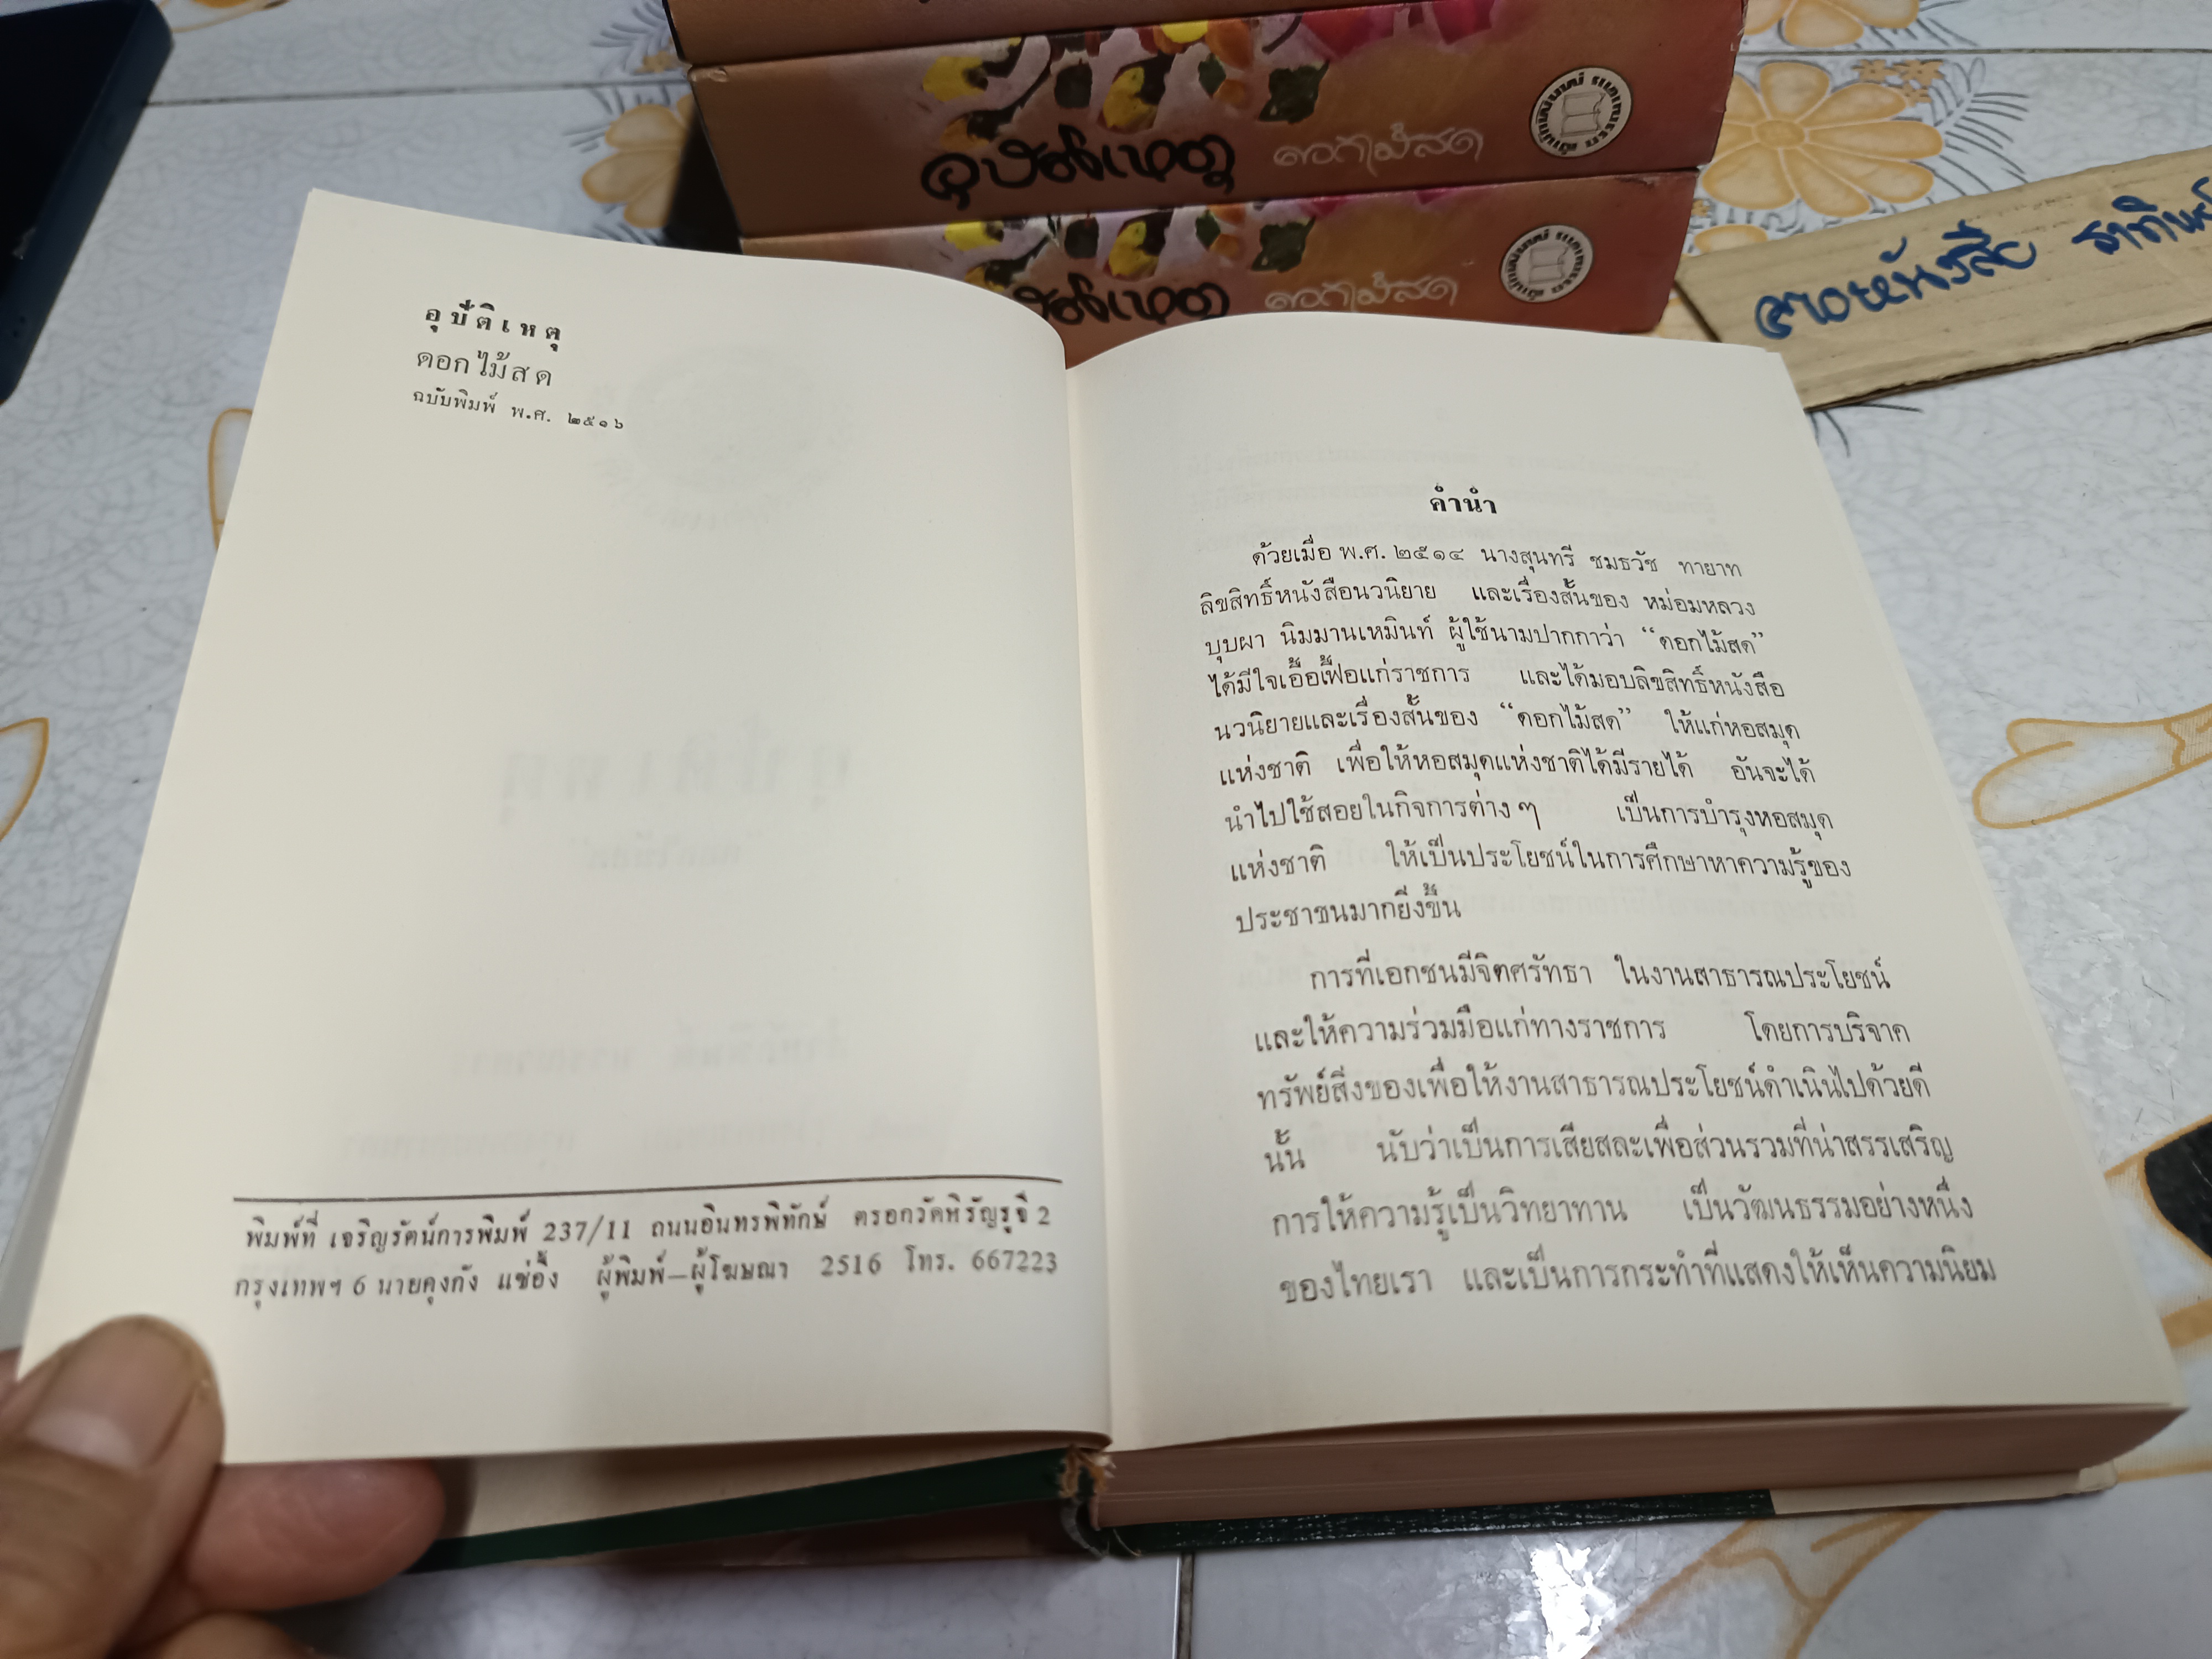 อุบัติเหตุ ดอกไม้สด สำนักพิมพ์ บรรณาคาร
อุบัติเหตุ ดอกไม้สด สำนักพิมพ์ บรรณาคาร
ขายหนังสือ
อุบัติเหตุ
ดอกไม้สด
ฉบับพิมพ์ พ.ศ. ๒๕๑๖
พิมพ์ที่ เจริญรัตน์การพิมพ์ 237/11 ถนนอินทรพิทักษ์ ตรอกวัดหิรัญรูจี 2
กรุงเทพฯ 6 นายคุงกัง แซ่อึ้ง ผู้พิมพ์—ผู้โฆษณา 2516 โทร. 667223
คำนำ
ด้วยเมื่อ พ.ศ. ๒๕๑๔ นางสุนทรี ชมธวัช ทายาท
ลิขสิทธิ์หนังสือนวนิยาย และเรื่องสั้นของ หม่อมหลวง
บุบผา นิมมานเหมินท์ ผู้ใช้นามปากกาว่า “ดอกไม้สด”
ได้มีใจเอื้อเฟื้อแก่ราชการ และได้มอบลิขสิทธิ์หนังสือ
นวนิยายและเรื่องสั้นของ “ดอกไม้สด” ให้แก่หอสมุด
แห่งชาติ เพื่อให้หอสมุดแห่งชาติได้มีรายได้ อันจะได้
นำไปใช้สอยในกิจการต่าง ๆ เป็นการบำรุงหอสมุด
แห่งชาติ ให้เป็นประโยชน์ในการศึกษาหาความรู้ของ
ประชาชนมากยิ่งขึ้น
การที่เอกชนมีจิตศรัทธา ในงานสาธารณประโยชน์
และให้ความร่วมมือแก่ทางราชการ โดยการบริจาค
ทรัพย์สิ่งของเพื่อให้งานสาธารณประโยชน์ดำเนินไปด้วยดี
นั้น นับว่าเป็นการเสียสละเพื่อส่วนรวมที่น่าสรรเสริญ
การให้ความรู้เป็นวิทยาทาน เป็นวัฒนธรรมอย่างหนึ่ง
ของไทยเรา และเป็นการกระทำที่แสดงให้เห็นความนิยม